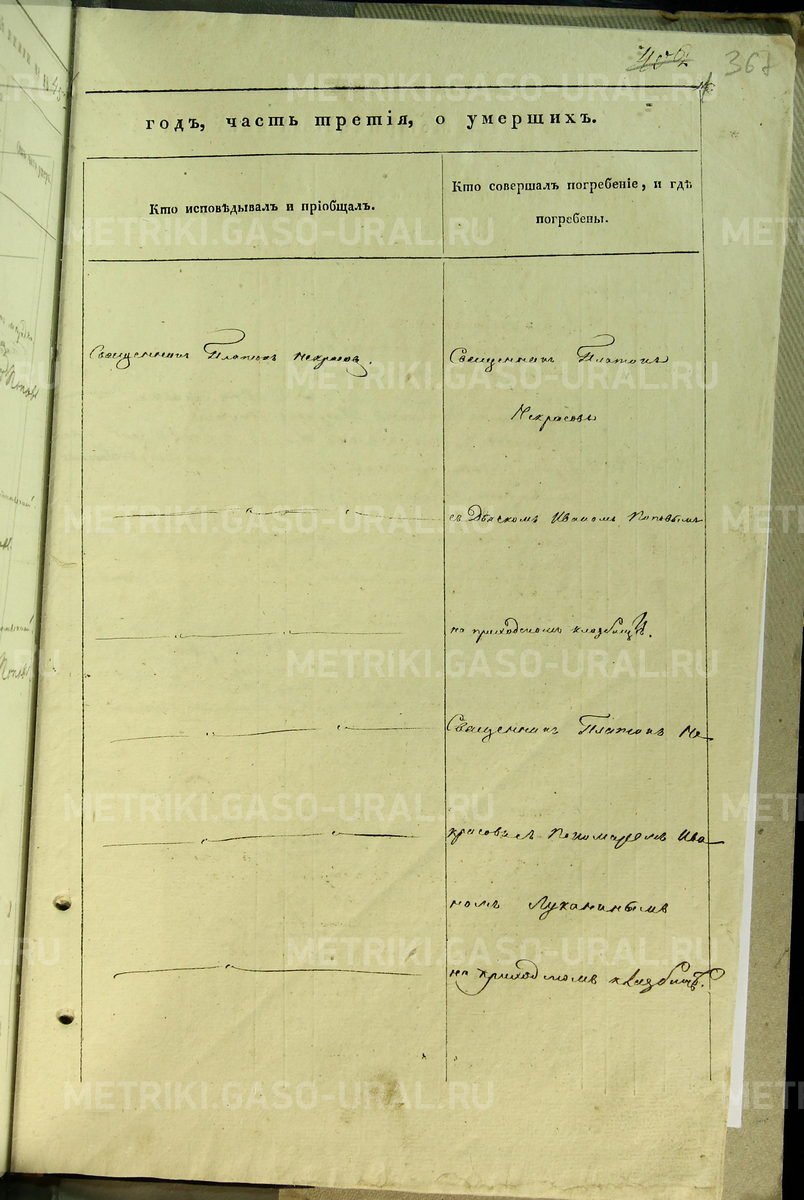 406
367
годъ, часть третія, о умершихъ.
Кто исповѣдывалъ и пріобщалъ.
Кто совершалъ погребеніе, и гдѣ
погребены.
Священникъ Платонъ Некрасовъ.
Священникъ Платонъ
Некрасовъ
съ Дьякомъ Иваномъ Поповымъ
на приходскомъ кладбищѣ.
Священникъ Платонъ Не-
красовъ съ Пономаремъ Ива-
номъ Луканинымъ
на приходскомъ кладбищѣ.
METRIKI.GASO-URAL.RU